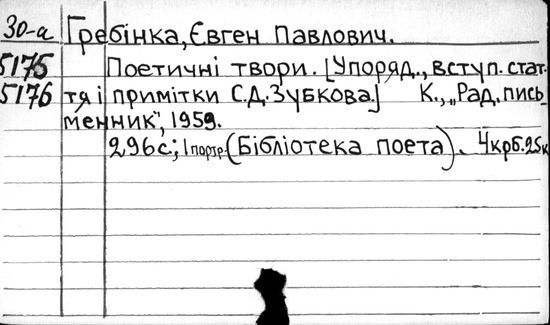 30-а Гребінка, Євген Павлович.
5175 Поетичні твори. [Упоряд., вступ. стат-
5176 тя і примітки С.Д. Зубкова.] К., „Рад. пись
менник", 1959.
296с.; 1 портр. (Бібліотека поета). 4крб.25к